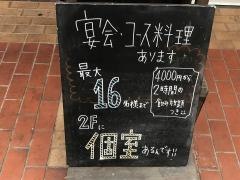 宴会・コース料理
あります
最大
16
名様まで
4000円から
2時間の
飲み放題
つきコース
2Fに
個室
あるんです!!